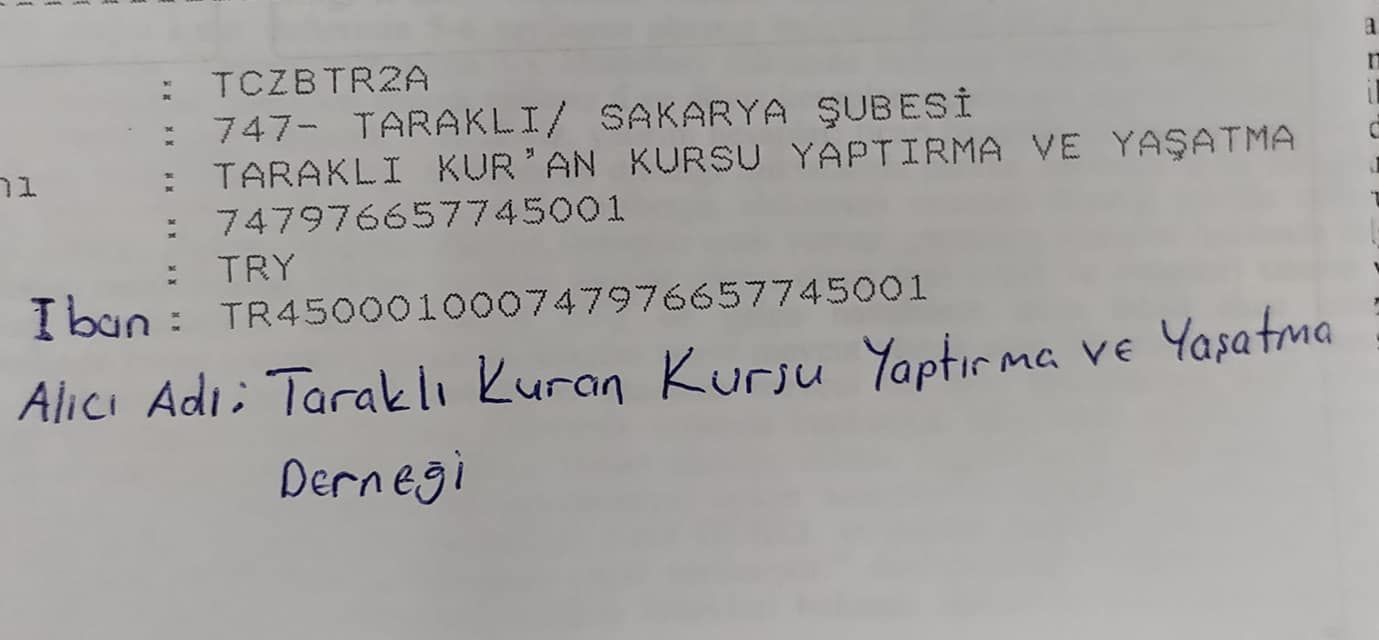 : TCZBTR2A
: 747- TARAKLI/ SAKARYA ŞUBESİ
: TARAKLI KUR'AN KURSU YAPTIRMA VE YAŞATMA
: 747976657745001
: TRY
Iban : TR450001000747976657745001
Alıcı Adı: Taraklı Kuran Kursu Yaptırma ve Yaşatma
Derneği